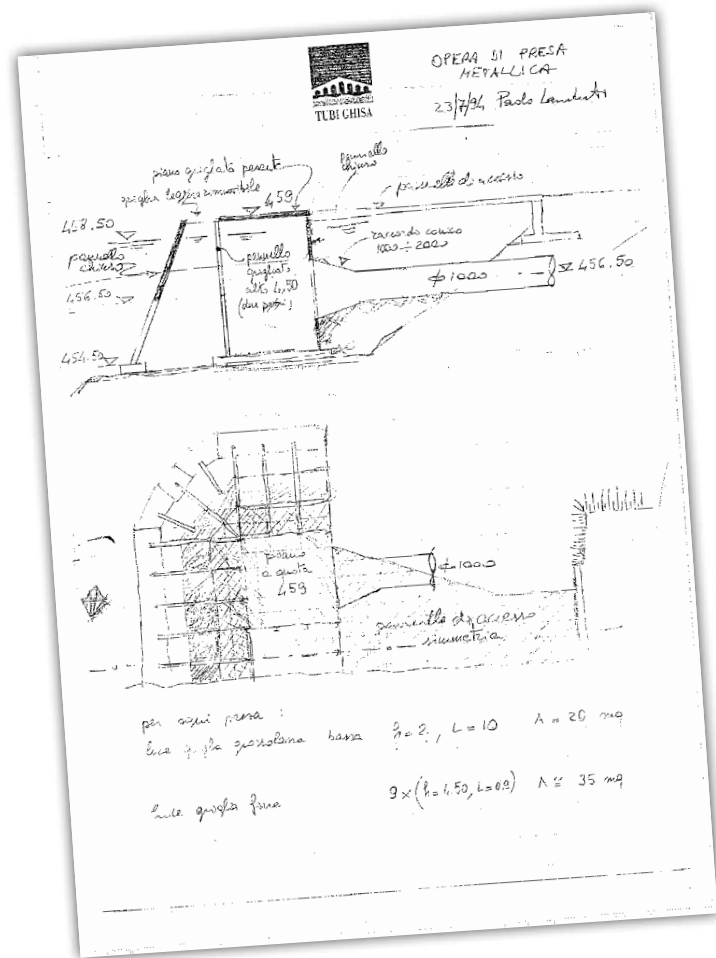 TUBI GHISA
OPERA DI PRESA
METALLICA
23/7/94 Paolo
piano grigliato pesante
griglia leggera rimovibile
pannello
chiuso
459
448.50
pannello
chiuso
456.50
454.50
pannello
grigliato
alto 4,50
(due pezzi)
raccordo conico
1000 ÷ 2000
ϕ 1000
456.50
piano
a quota
459
ϕ 1000
d'accesso
simmetria
per ogni presa :
luce griglia grossolana bassa h = 2, L = 10 A = 20 mq
luce griglia fine 9 × (h = 4.50, L = 0.9) A ≅ 35 mq